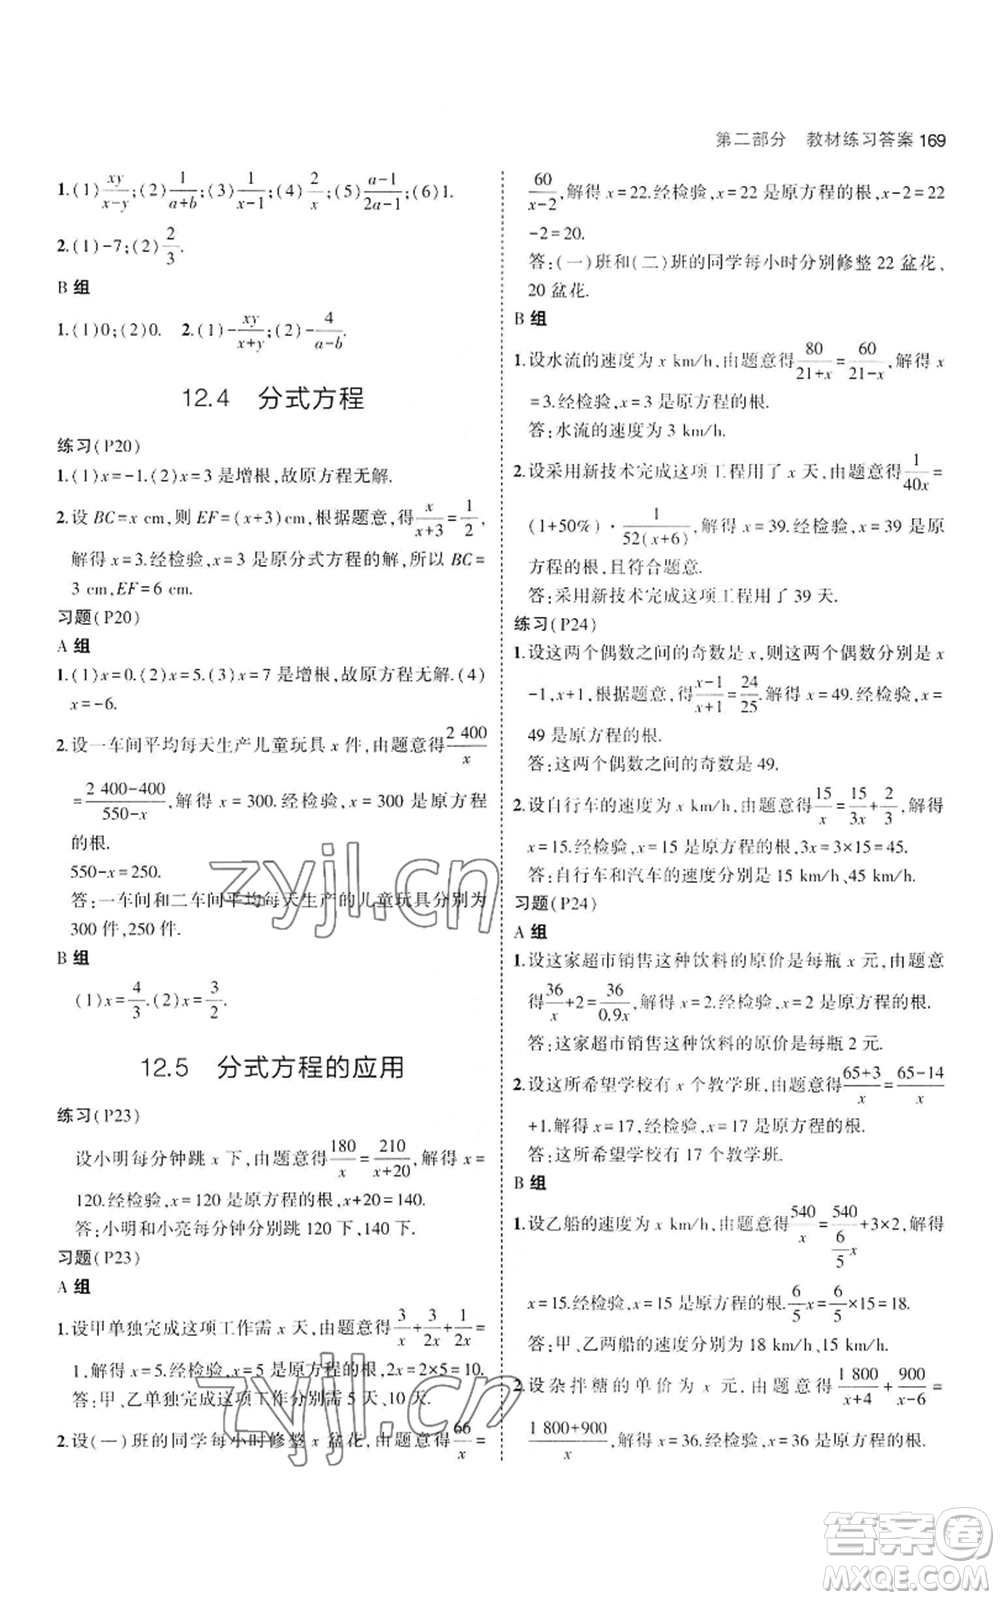 第二部分　教材练习答案 169
1.(1)xy/(x-y);(2)1/(a+b);(3)1/(x-1);(4)2/x;(5)(a-1)/(2a-1);(6)1.
2.(1)-7;(2)2/3.
B 组
1.(1)0;(2)0.　2.(1)-xy/(x+y);(2)-4/(a-b).
12.4　分式方程
练习(P20)
1.(1)x=-1.(2)x=3 是增根,故原方程无解.
2.设 BC=x cm,则 EF=(x+3)cm,根据题意,得x/(x+3)=1/2,
解得 x=3.经检验,x=3 是原分式方程的解,所以 BC=
3 cm,EF=6 cm.
习题(P20)
A 组
1.(1)x=0.(2)x=5.(3)x=7 是增根,故原方程无解.(4)
x=-6.
2.设一车间平均每天生产儿童玩具 x 件,由题意得2 400/x
=(2 400-400)/(550-x),解得 x=300.经检验,x=300 是原方程
的根.
550-x=250.
答:一车间和二车间平均每天生产的儿童玩具分别为
300 件,250 件.
B 组
(1)x=4/3.(2)x=3/2.
12.5　分式方程的应用
练习(P23)
设小明每分钟跳 x 下,由题意得180/x=210/(x+20),解得 x=
120.经检验,x=120 是原方程的根,x+20=140.
答:小明和小亮每分钟分别跳 120 下,140 下.
习题(P23)
A 组
1.设甲单独完成这项工作需 x 天,由题意得3/x+3/2x+1/2x=
1,解得 x=5.经检验,x=5 是原方程的根,2x=2×5=10.
答:甲、乙单独完成这项工作分别需 5 天、10 天.
2.设(一)班的同学每小时修整 x 盆花,由题意得66/x=
60/(x-2),解得 x=22.经检验,x=22 是原方程的根,x-2=22
-2=20.
答:(一)班和(二)班的同学每小时分别修整 22 盆花、
20 盆花.
B 组
1.设水流的速度为 x km/h,由题意得80/(21+x)=60/(21-x),解得 x
=3.经检验,x=3 是原方程的根.
答:水流的速度为 3 km/h.
2.设采用新技术完成这项工程用了 x 天,由题意得1/40x=
(1+50%)·1/52(x+6),解得 x=39.经检验,x=39 是原
方程的根,且符合题意.
答:采用新技术完成这项工程用了 39 天.
练习(P24)
1.设这两个偶数之间的奇数是 x,则这两个偶数分别是 x
-1,x+1,根据题意,得(x-1)/(x+1)=24/25.解得 x=49.经检验,x=
49 是原方程的根.
答:这两个偶数之间的奇数是 49.
2.设自行车的速度为 x km/h,由题意得15/x=15/3x+2/3,解得
x=15.经检验,x=15 是原方程的根,3x=3×15=45.
答:自行车和汽车的速度分别是 15 km/h,45 km/h.
习题(P24)
A 组
1.设这家超市销售这种饮料的原价是每瓶 x 元,由题意
得36/x+2=36/0.9x,解得 x=2.经检验,x=2 是原方程的根.
答:这家超市销售这种饮料的原价是每瓶 2 元.
2.设这所希望学校有 x 个教学班,由题意得(65+3)/x=(65-14)/x
+1.解得 x=17,经检验,x=17 是原方程的根.
答:这所希望学校有 17 个教学班.
B 组
1.设乙船的速度为 x km/h,由题意得540/x=540/(6/5 x)+3×2,解得
x=15.经检验,x=15 是原方程的根.6/5x=6/5×15=18.
答:甲、乙两船的速度分别为 18 km/h,15 km/h.
2.设杂拌糖的单价为 x 元,由题意得1 800/(x+4)+900/(x-6)=
(1 800+900)/x,解得 x=36.经检验,x=36 是原方程的根.
zyjl.cn
zyjl.cn
答案圈
MXQE.COM